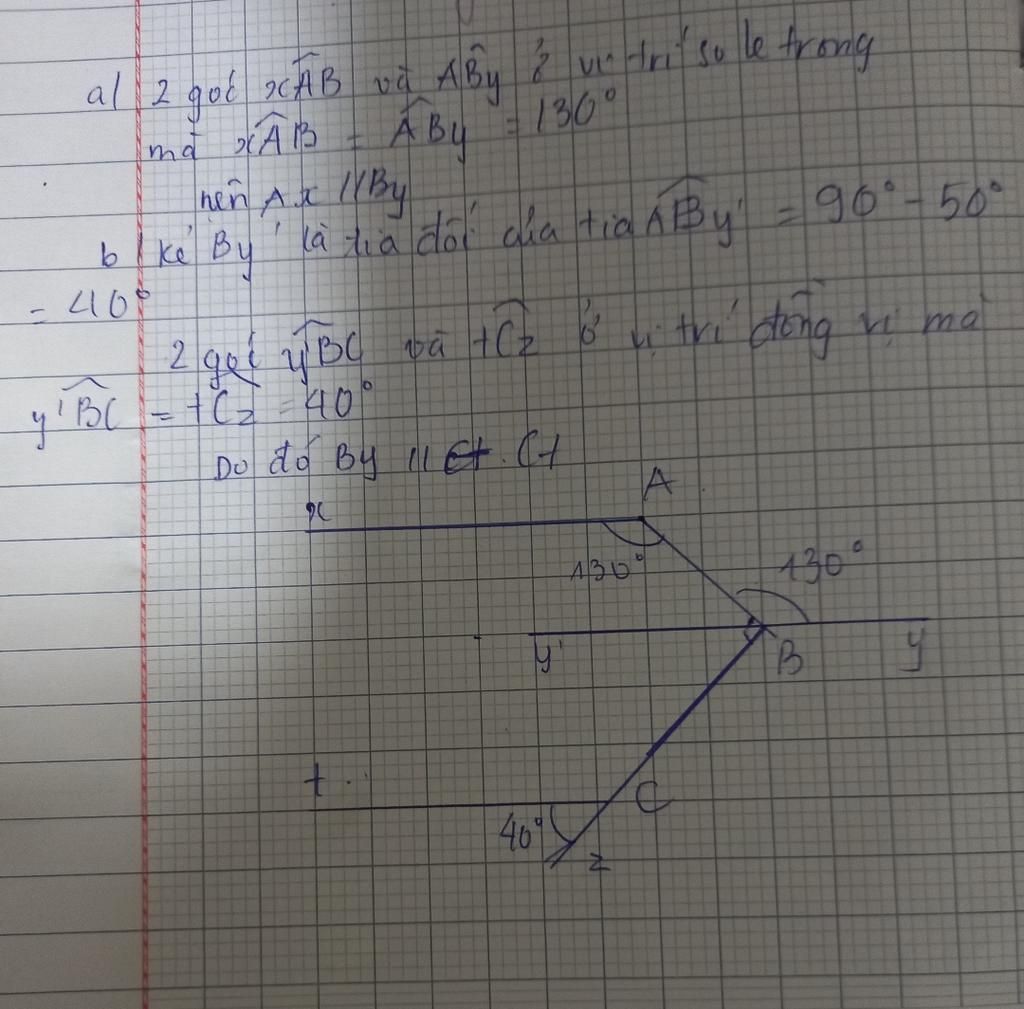 a/ 2 goć xAB và ABy ở vị trí so le trong
mà xAB = ABy = 130°
nên Ax // By
b/ kẻ By' là tia đối của tia ABy' = 90° - 50°
= 40°
2 góc y'BC và tCz ở vị trí đồng vị mà
y'BC = tCz = 40°
Do đó By // Ct. Ct
x
A
130°
130°
y'
B
y
t
C
40°
z